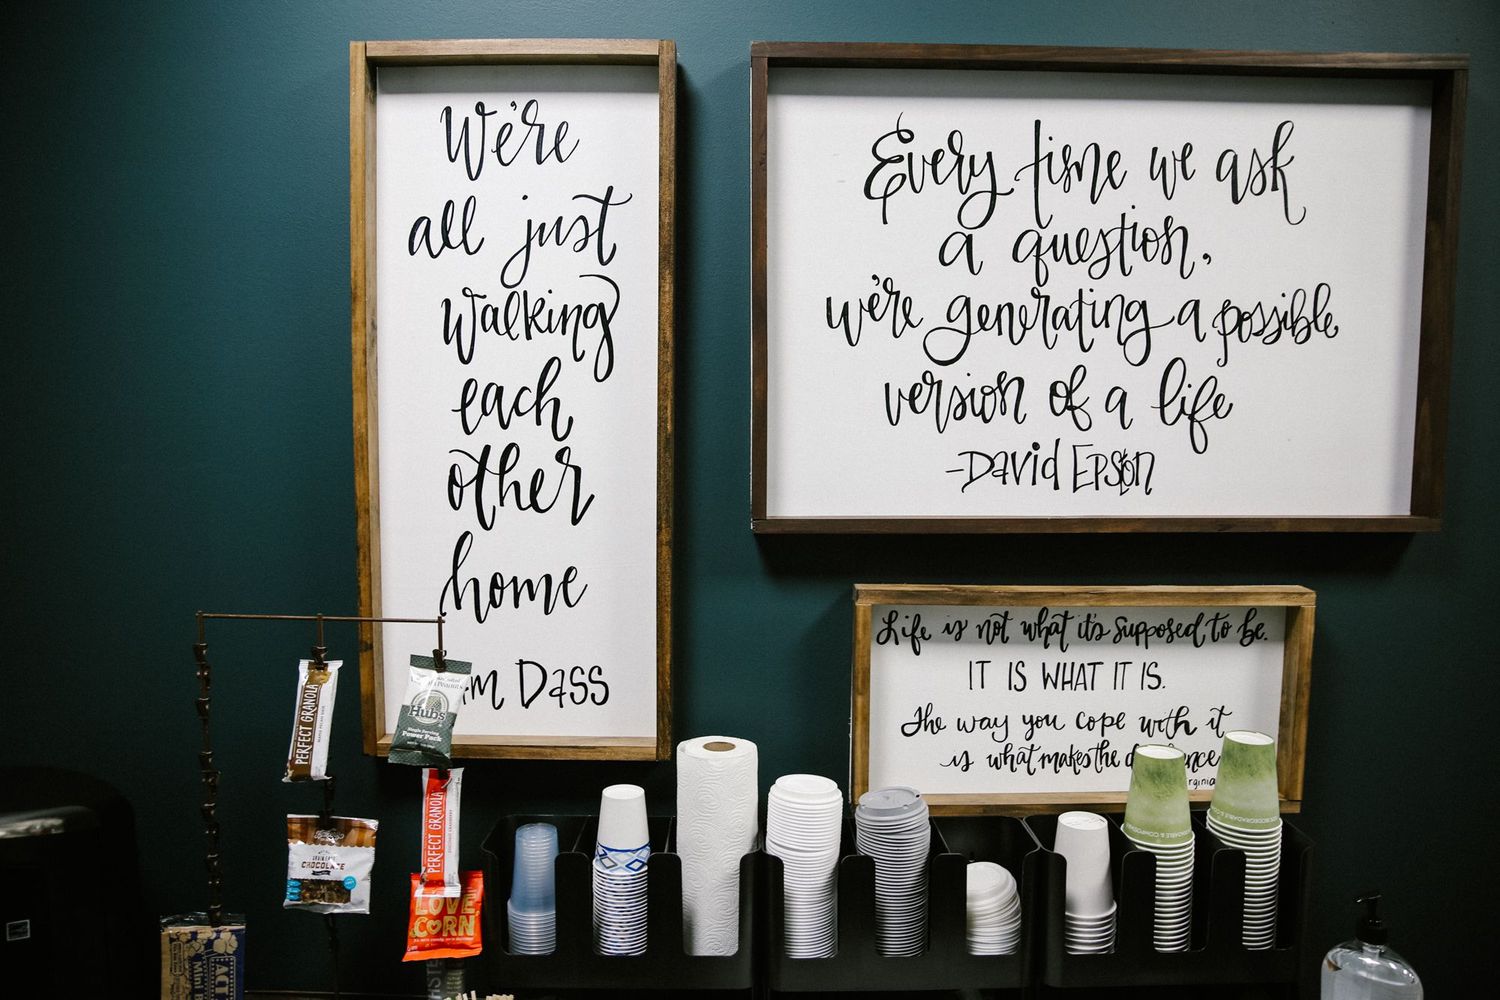 We're
all just
walking
each
other
home
Dass
Every time we ask
a question,
we're generating a possible
version of a life
-David Epston
Life is not what it's supposed to be.
IT IS WHAT IT IS.
The way you cope with it
is what makes the
PERFECT GRANOLA
Hubs
Single Serving
Power Pack
PERFECT GRANOLA
CHOCOLATE
LOVE
CORN
ACT